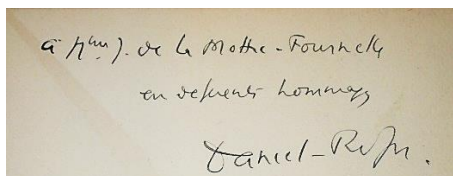 à Mme J. de la Mothe-Fournelle
en déférents hommages
Daniel-Rops.